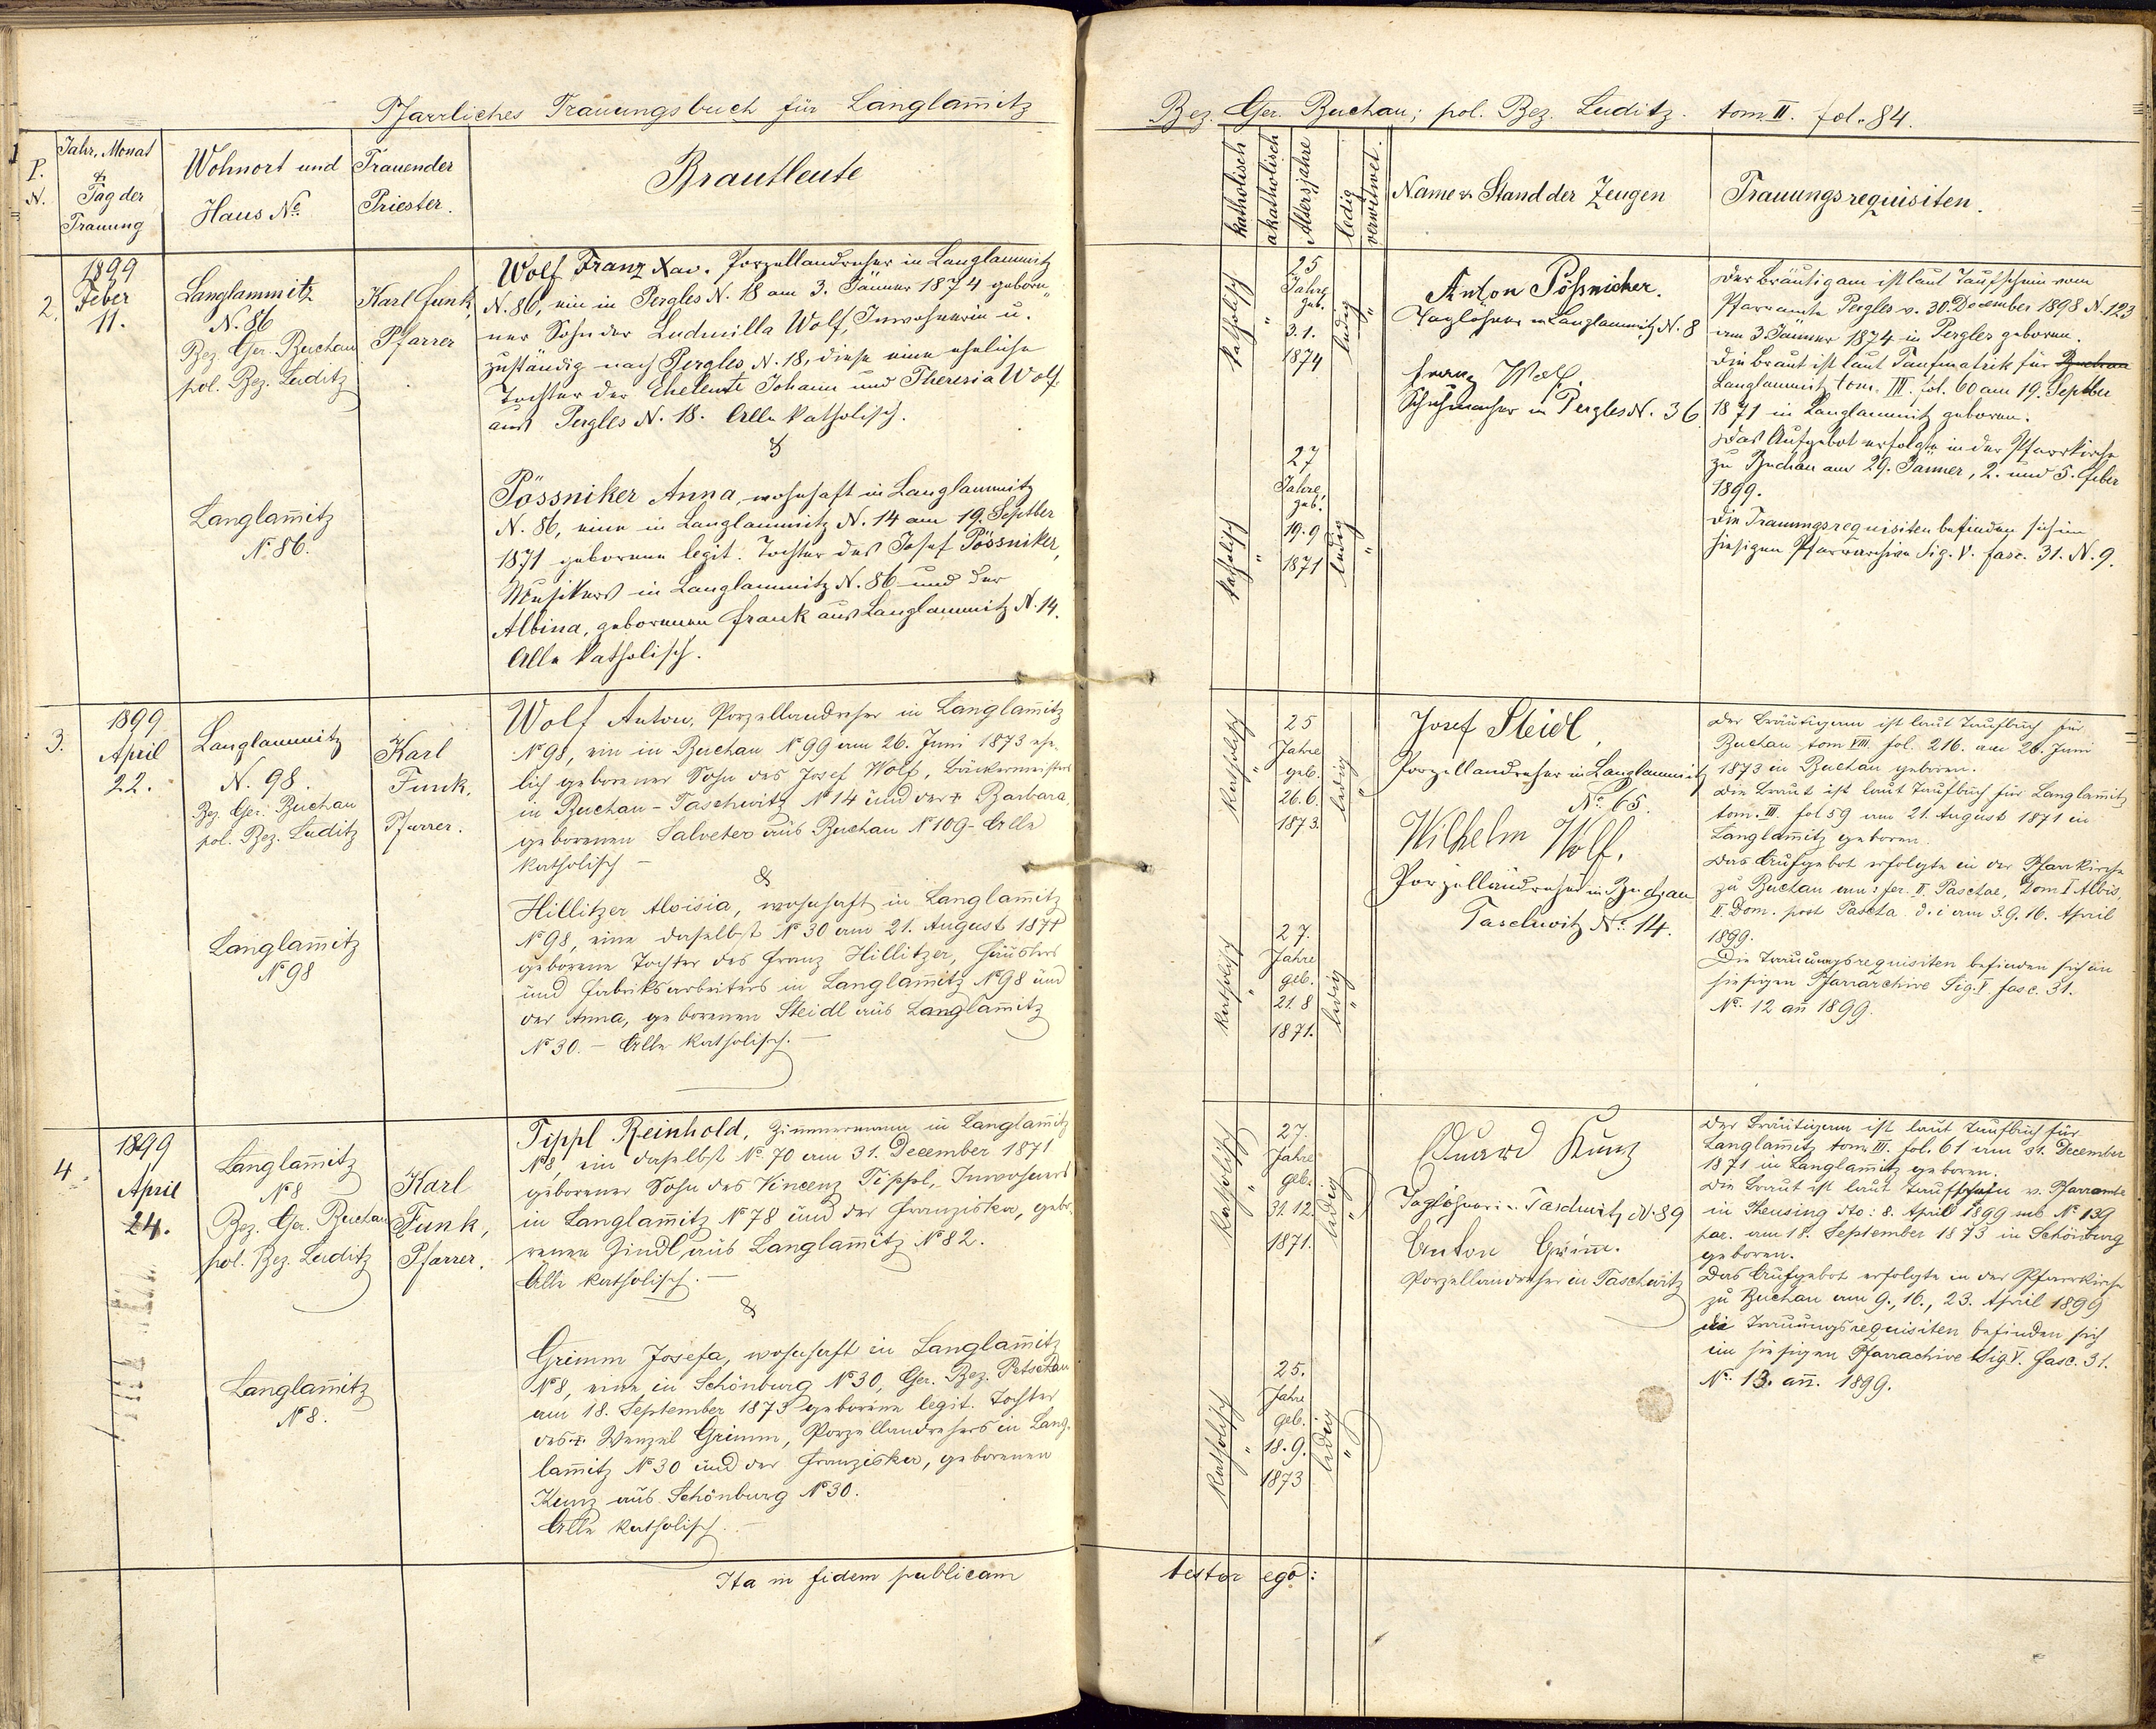 Pfarrliches Trauungsbuch für Langlam̄itz
P. N.
Jahr, Monat
&
Tag der
Trauung
Wohnort und
Haus No.
Trauender
Priester.
Brautleute
2.
1899
Feber
11.
Langlammitz
N. 86
Bez. Ger. Buchau
pol. Bez. Luditz
Karl Funk,
Pfarrer
Wolf Franz Xav. Porzellandreher in Langlammitz
N. 86, ein in Pergles N. 18 am 3. Jänner 1874 gebore-
ner Sohn der Ludmilla Wolf, Inwohnerin u.
zuständig nach Pergles N. 18, diese eine eheliche
Tochter der Eheleute Johann und Theresia Wolf
aus Pergles N. 18. Alle katholisch.
&
Langlam̄itz
N. 86.
Pössniker Anna, wohnhaft in Langlammitz
N. 86, eine in Langlammitz N. 14 am 19. Septber
1871 geborene legit. Tochter des Josef Pössniker,
Musikers in Langlammitz N. 86 und der
Albina, geborenen Frank aus Langlammitz N. 14.
Alle katholisch.
3.
1899
April
22.
Langlammitz
N. 98.
Bez. Ger. Buchau
pol. Bez. Luditz
Karl
Funk,
Pfarrer.
Wolf Anton, Porzellandreher in Langlam̄itz
No 98, ein in Buchau No 99 am 26. Juni 1873 ehe-
lich geborener Sohn des Josef Wolf, Bäckermeisters
in Buchau-Taschwitz No 14 und der + Barbara,
geborenen Salveter aus Buchau No 109 - Alle
katholisch –
&
Langlam̄itz
No 98
Hillitzer Aloisia, wohnhaft in Langlam̄itz
No 98, eine daselbst No 30 am 21. August 1871
geborene Tochter des Franz Hillitzer, Häuslers
und Fabriksarbeiters in Langlam̄itz No 98 und
der Anna, geborenen Steidl aus Langlam̄itz
No 30. – Alle katholisch. –
4.
1899
April
24.
Langlam̄itz
No 8
Bez. Ger. Buchau
pol. Bez. Luditz
Karl
Funk,
Pfarrer.
Tippl Reinhold, Zimmermann in Langlam̄itz
No 8, ein daselbst No. 70 am 31. December 1871
geborener Sohn des Vincenz Tippl, Inwohners
in Langlam̄itz No 78 und der Franziska, gebo-
renen Zindl, aus Langlam̄itz No 82.
Alle katholisch. –
&
Langlam̄itz
No 8.
Grimm Josefa, wohnhaft in Langlam̄itz
No 8, eine in Schönburg No 30, Ger. Bez. Petschau
am 18. September 1873 geborene legit. Tochter
des + Wenzel Grimm, Porzellandrehers in Lang-
lam̄itz No 30 und der Franziska, geborenen
Kunz aus Schönburg No 30.
Alle katholisch. –
Ita in fidem publicam
Bez. Ger. Buchau; pol. Bez. Luditz. tom. II. fol. 84.
katholisch
akatholisch
Altersjahre
ledig
verwitwet.
Name u. Stand der Zeugen
Trauungsrequisiten.
katholisch
"
25
Jahre
geb.
3. 1.
1874
ledig
"
Anton Pößnicker.
Taglöhner in Langlammitz N. 8
Franz Wolf.
Schuhmacher in Pergles N. 36
Der Bräutigam ist laut Taufschein vom
Pfarramte Pergles v. 30. December 1898 N. 123
am 3. Jänner 1874 in Pergles geboren.
Die Braut ist laut Taufmatrik für Buchau
Langlammitz tom. III. fol. 60 am 19. Septber
1871 in Langlammitz geboren.
Das Aufgebot erfolgte in der Pfarrkirche
zu Buchau am 29. Jänner, 2. und 5. Feber
1899.
Die Trauungsrequisiten befinden sich im
hiesigen Pfarrarchive Sig. V. fasc. 31. N. 9.
katholisch
"
27
Jahre,
geb.
19. 9
1871
ledig
"
katholisch
"
25
Jahre
geb.
26. 6.
1873.
ledig
"
Josef Steidl,
Porzellandreher in Langlammitz
No. 65.
Wilhelm Wolf,
Porzellandreher in Buchau
Taschwitz No. 14.
Der Bräutigam ist laut Taufbuch für
Buchau tom VIII. fol. 216. am 26. Juni
1873 in Buchau geboren.
Die Braut ist laut Taufbuch für Langlam̄itz
tom. III. fol 59 am 21. August 1871 in
Langlam̄itz geboren.
Das Aufgebot erfolgte in der Pfarrkirche
zu Buchau am: fer. II. Paschae, Dom I Albis,
II. Dom. post Pascha d. i am 3. 9. 16. April
1899.
Die Trauungsrequisiten befinden sich im
hiesigen Pfarrarchive Sig. V. fasc. 31.
No. 12 an̄ 1899.
katholisch
"
27.
Jahre
geb.
21. 8
1871.
ledig
"
katholisch
"
27
Jahre
geb.
31. 12.
1871.
ledig
"
Eduard Kunz
Taglöhner in Taschwitz N. 89
Anton Grim̄.
Porzellandreher in Taschwitz
Der Bräutigam ist laut Taufbuch für
Langlam̄itz tom. III. fol. 61 am 31. December
1871 in Langlam̄itz geboren.
Die Braut ist laut Taufschein v. Pfarramte
in Theusing dto: 8. April 1899 sub No. 139
par. am 18. September 1873 in Schönburg
geboren.
Das Aufgebot erfolgte in der Pfarrkirche
zu Buchau am 9., 16., 23. April 1899
die Trauungsrequisiten befinden sich
im hiesigen Pfarrachive Sig. V. fasc. 31.
No. 13. an̄. 1899.
katholisch
"
25.
Jahre
geb.
18. 9.
1873
ledig
"
testor ego: